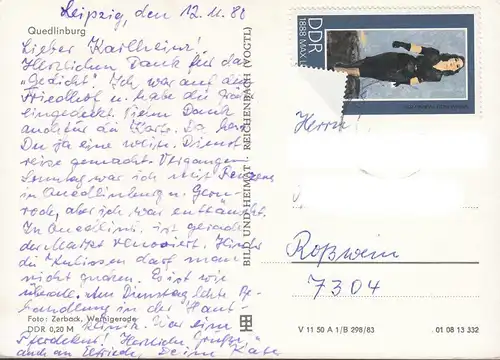 Leipzig, den 12.11.88
Quedlinburg
Lieber Karlheinz!
Herzlichen Dank für das
"Gedicht". Ich war auf dem
Friedhof u. habe die Gräber
eingedeckt. Vielen Dank
auch für die Karte. Da hast
Du ja eine weite Dienst-
reise gemacht. Vergangen
Sonntag war ich mit
in Quedlinburg u. Gern-
rode, aber ich war enttäuscht.
In Quedlinb. ist gerade
der Markt renoviert. Hinter
die Kulissen darf man
nicht gucken. Es ist wie
überall. Am Dienstag letzte Be-
handlung in der Haut-
klinik. War eine
Pferdekur! Herzliche Grüße
auch an Elfriede, Deine Käte
Foto: Zerback, Wernigerode
DDR 0,20 M
BILD UND HEIMAT REICHENBACH (VOGTL)
V 11 50 A 1/B 298/83
01 08 13 332
DDR
1888 MAX L
Herrn
Roßwein
7304